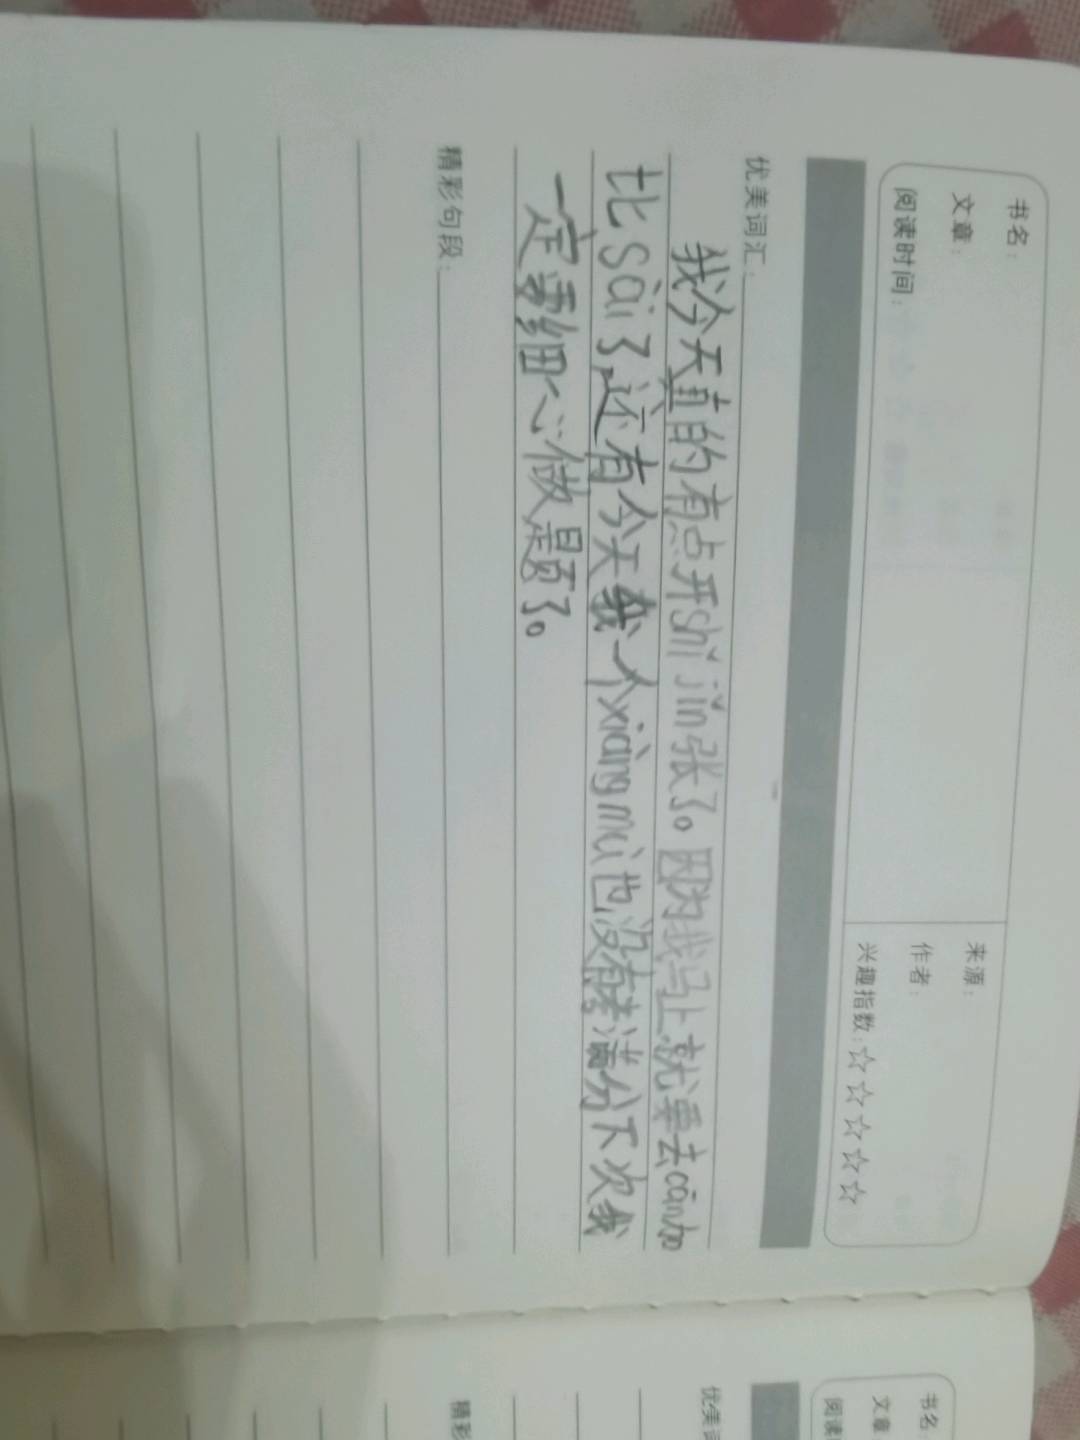 书名：
文章：
阅读时间：
来源：
作者：
兴趣指数：☆☆☆☆☆
优美词汇：
我今天真的有点开shǐ jǐn张了。因为我马上就要去cān加
比sài了,还有今天我一个xiàng mù也没有考满分下次我
一定要细心做题了。
精彩句段：
书名：
文章
阅读
优美词
精彩